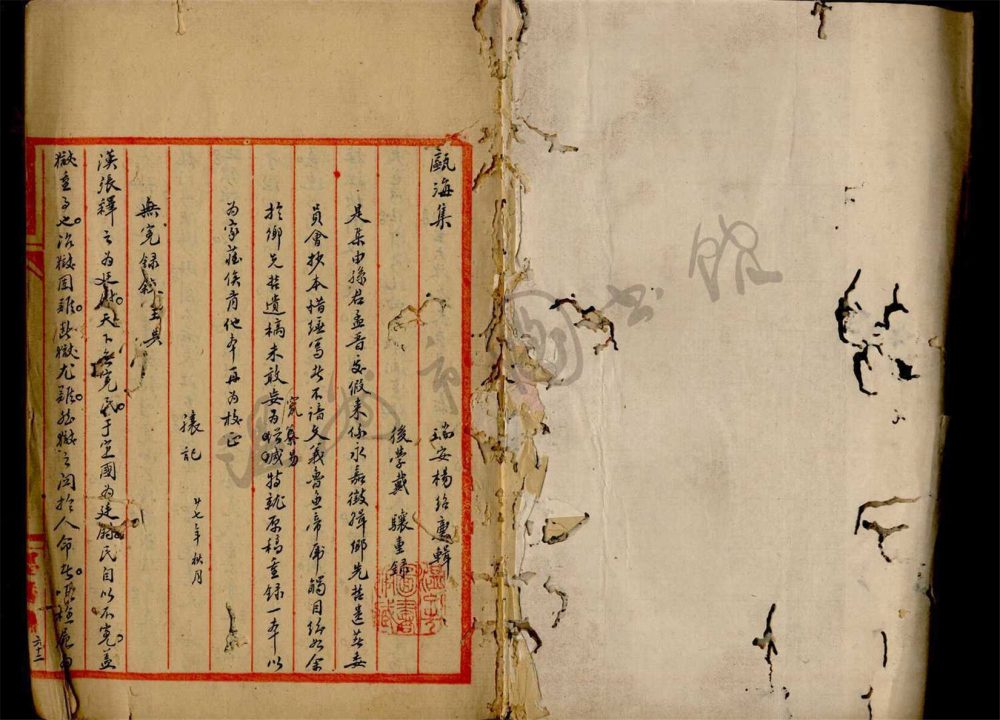 甌海集
瑞安楊紹廉輯
後學戴驤重錄
是集由孫君孟晉處假來係永嘉徵輯鄉先哲遺著委
員會抄本惜繕寫者不諳文義魯魚帝虎觸目皆然余
於鄉先哲遺稿未敢妄為增減特就原稿重錄一本以
為家藏俟有他本再為校正
驤記 廿七年秋月
無冤錄
漢張釋之為廷尉天下無冤民于定國為廷尉民自以不冤蓋
獄重事也治獄固難斷獄尤難然獄之關於人命者